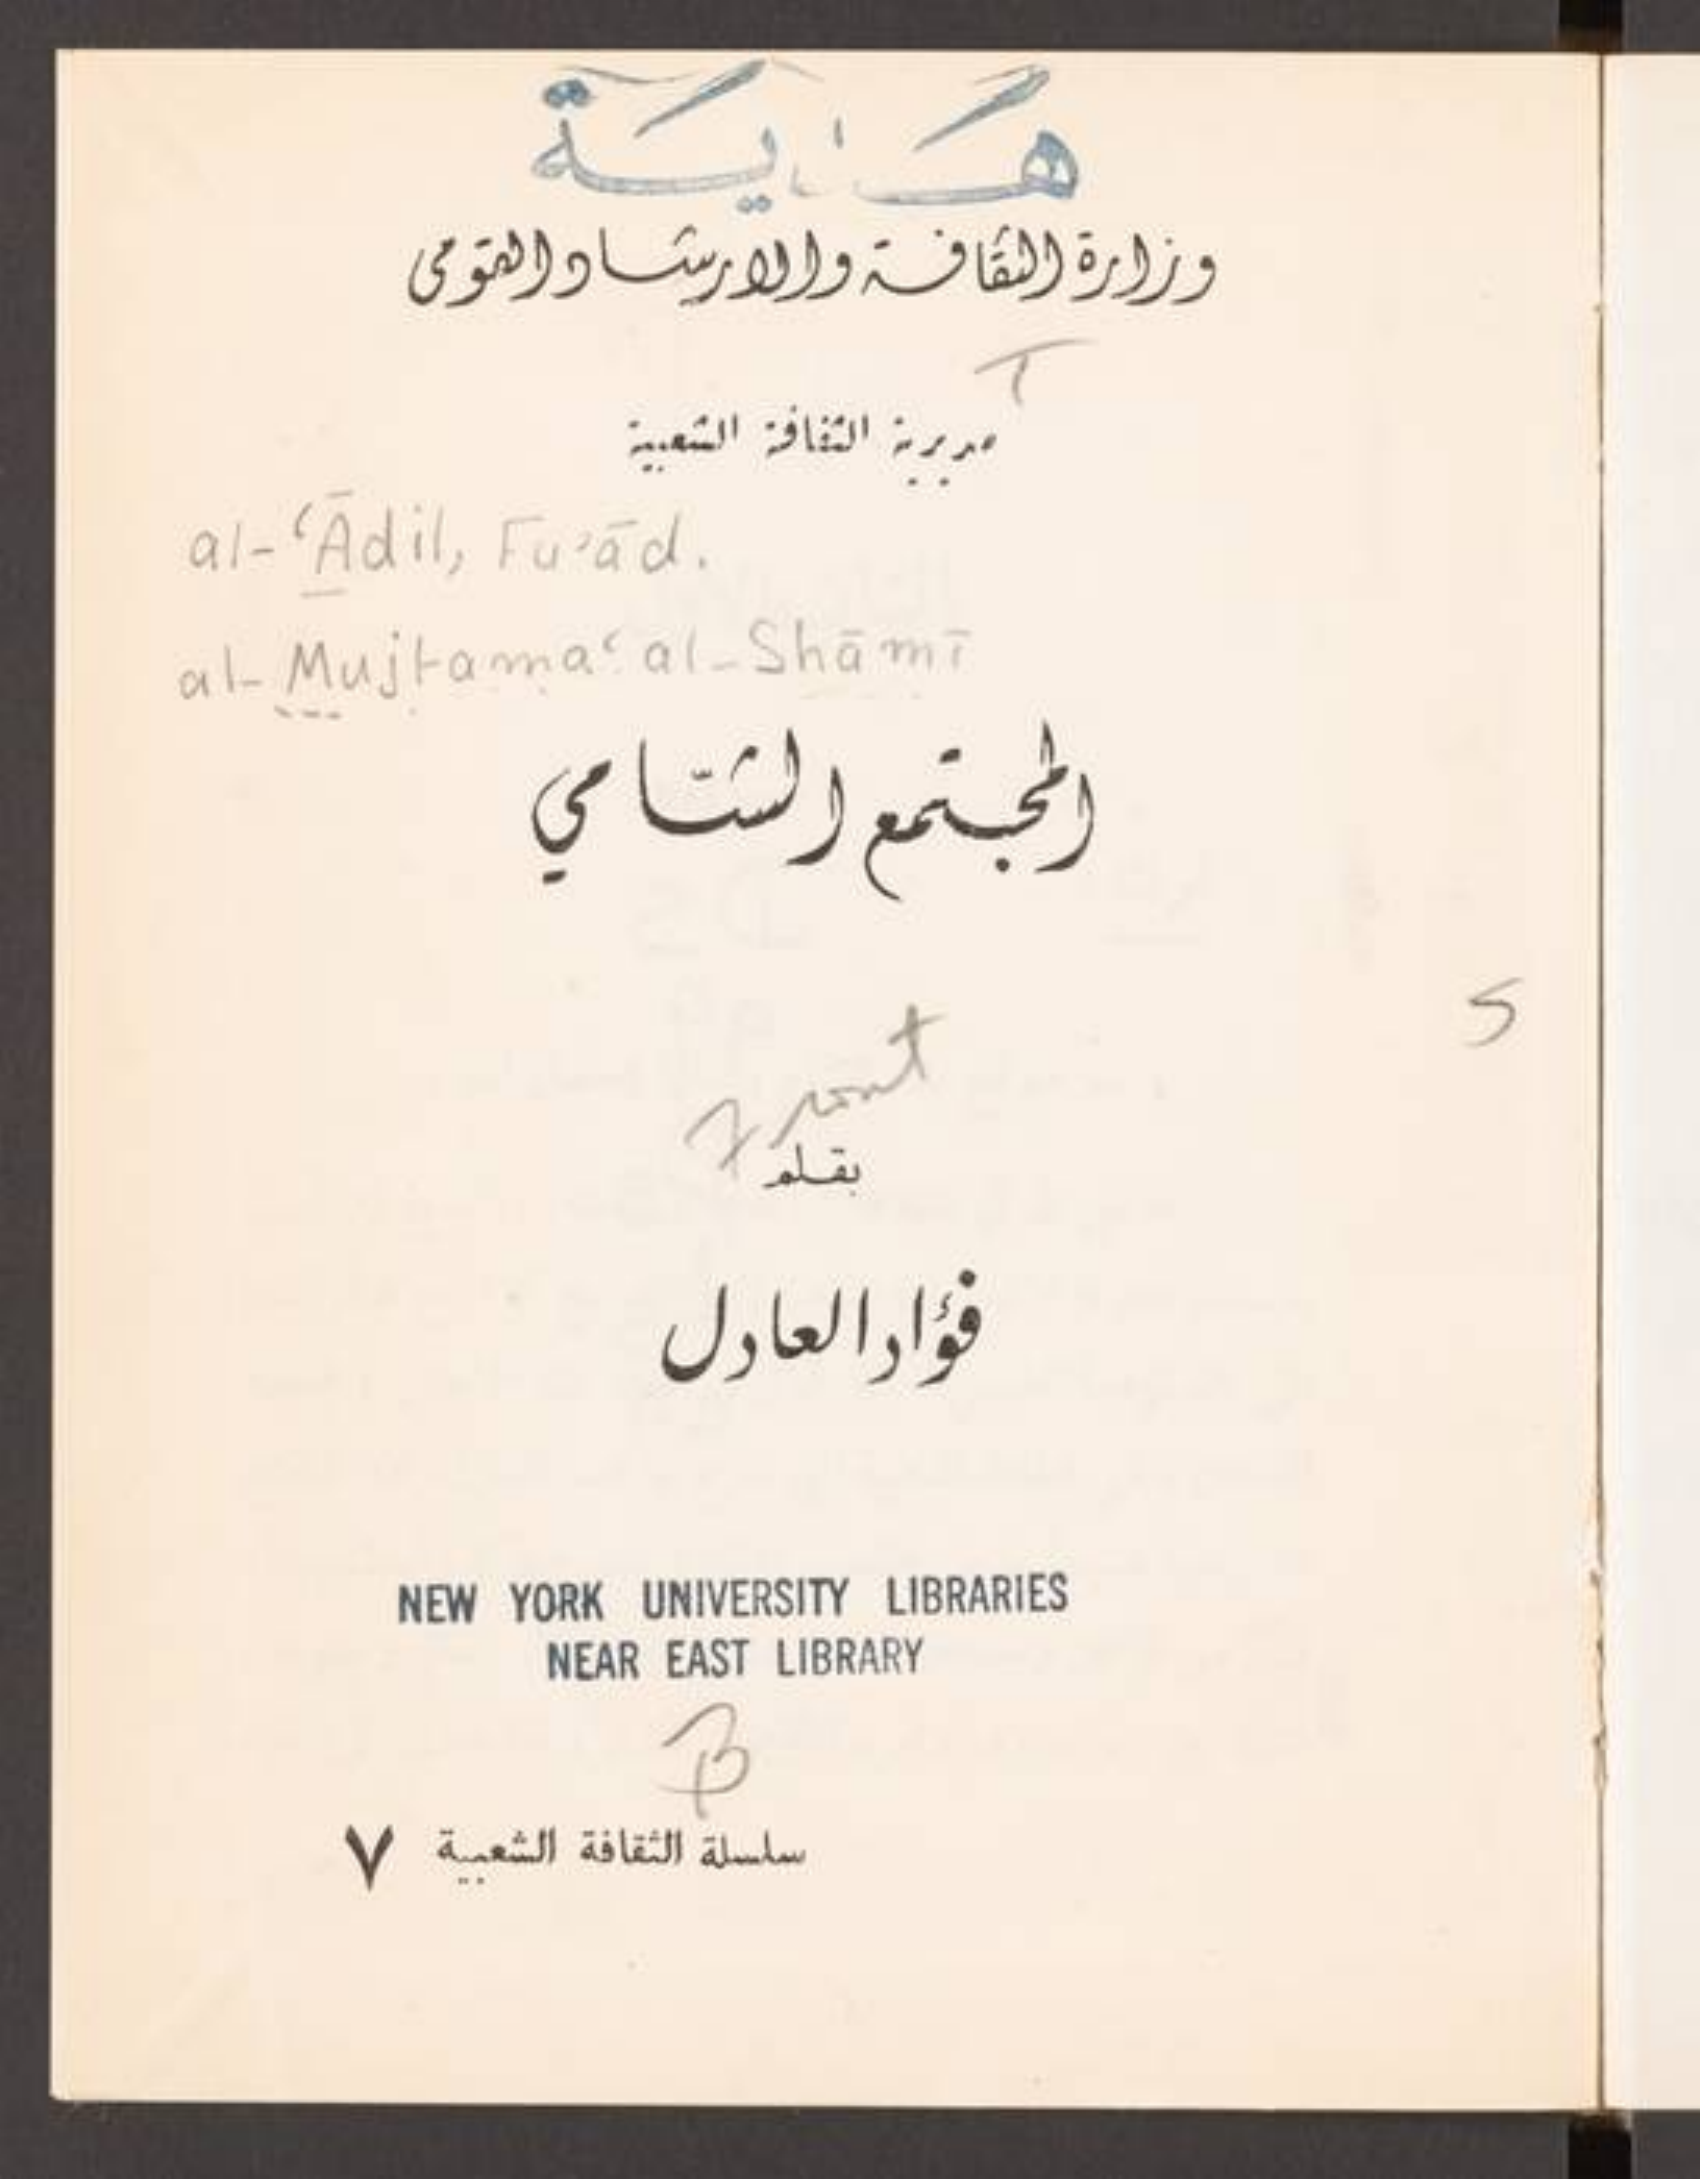 هدية
وزارة الثقافة والارشاد القومي
T
مديرية الثقافة الشعبية
al-ʿĀdil, Fuʾād.
al-Mujtamaʿ al-Shāmī
المجتمع الشّامي
S
Front
بقلم
فؤاد العادل
NEW YORK UNIVERSITY LIBRARIES
NEAR EAST LIBRARY
B
سلسلة الثقافة الشعبية ٧